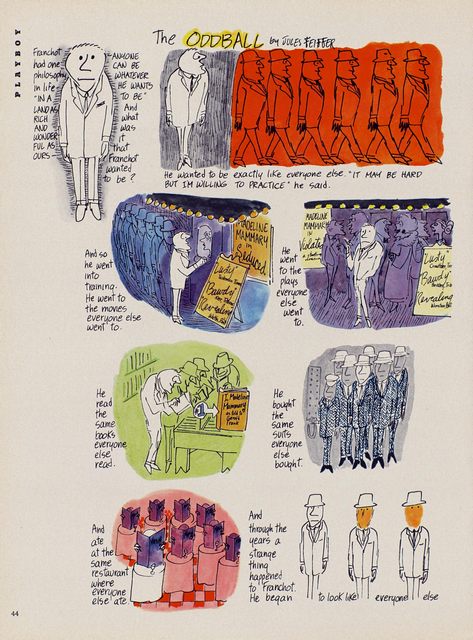 PLAYBOY
The ODDBALL by JULES FEIFFER
Franchot
had one
philosophy
in life
"IN A
LAND AS
RICH
AND
WONDER
FUL AS
OURS —
ANYONE
CAN BE
WHATEVER
HE WANTS
TO BE"
And
what
was
it
that
Franchot
wanted
to be?
He wanted to be exactly like everyone else. "IT MAY BE HARD
BUT I'M WILLING TO PRACTICE" he said.
And so
he went
into
training.
He went to
the movies
everyone else
went to.
MADELINE
MAMMARY
in
Seduced
Lusty
Bawdy
Revealing
He
went
to the
plays
everyone
else
went
to.
MADELINE
MAMMARY
IN
Violated
Lusty
Bawdy
Revealing
He
read
the
same
books
everyone
else
read.
I, Madeline
Mammary
as told to
Gerold
Frank
He
bought
the
same
suits
everyone
else
bought.
And
ate
at the
same
restaurant
where
everyone
else ate.
And
through the
years a
strange
thing
happened
to Franchot.
He began
to look like everyone else
44